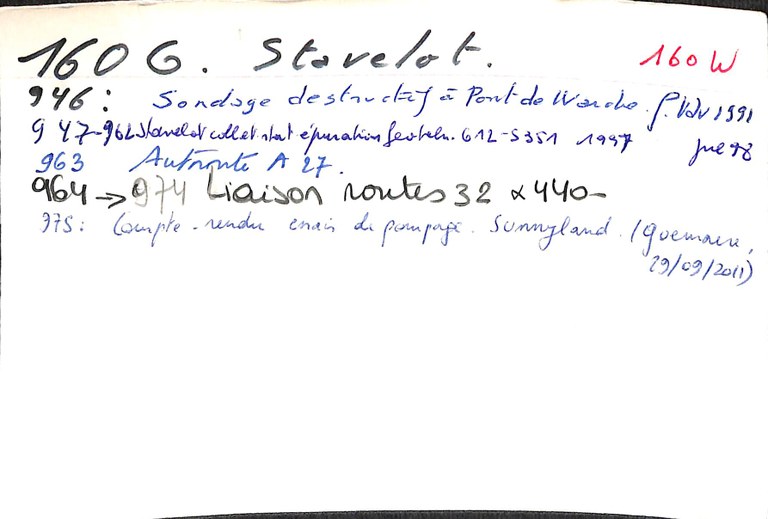 160 G. Stavelot. 160 W
946: Sondage destructif à Pont de Warche. 1991
947-962 Stavelot collet stat épuration Geotech. 612-S351 1997
963 Autoroute A 27.
964 → 974 Liaison routes 32 & 440-
975: Compte-rendu essais de pompage. Sunnyland. (Goemaere,
29/09/2011)